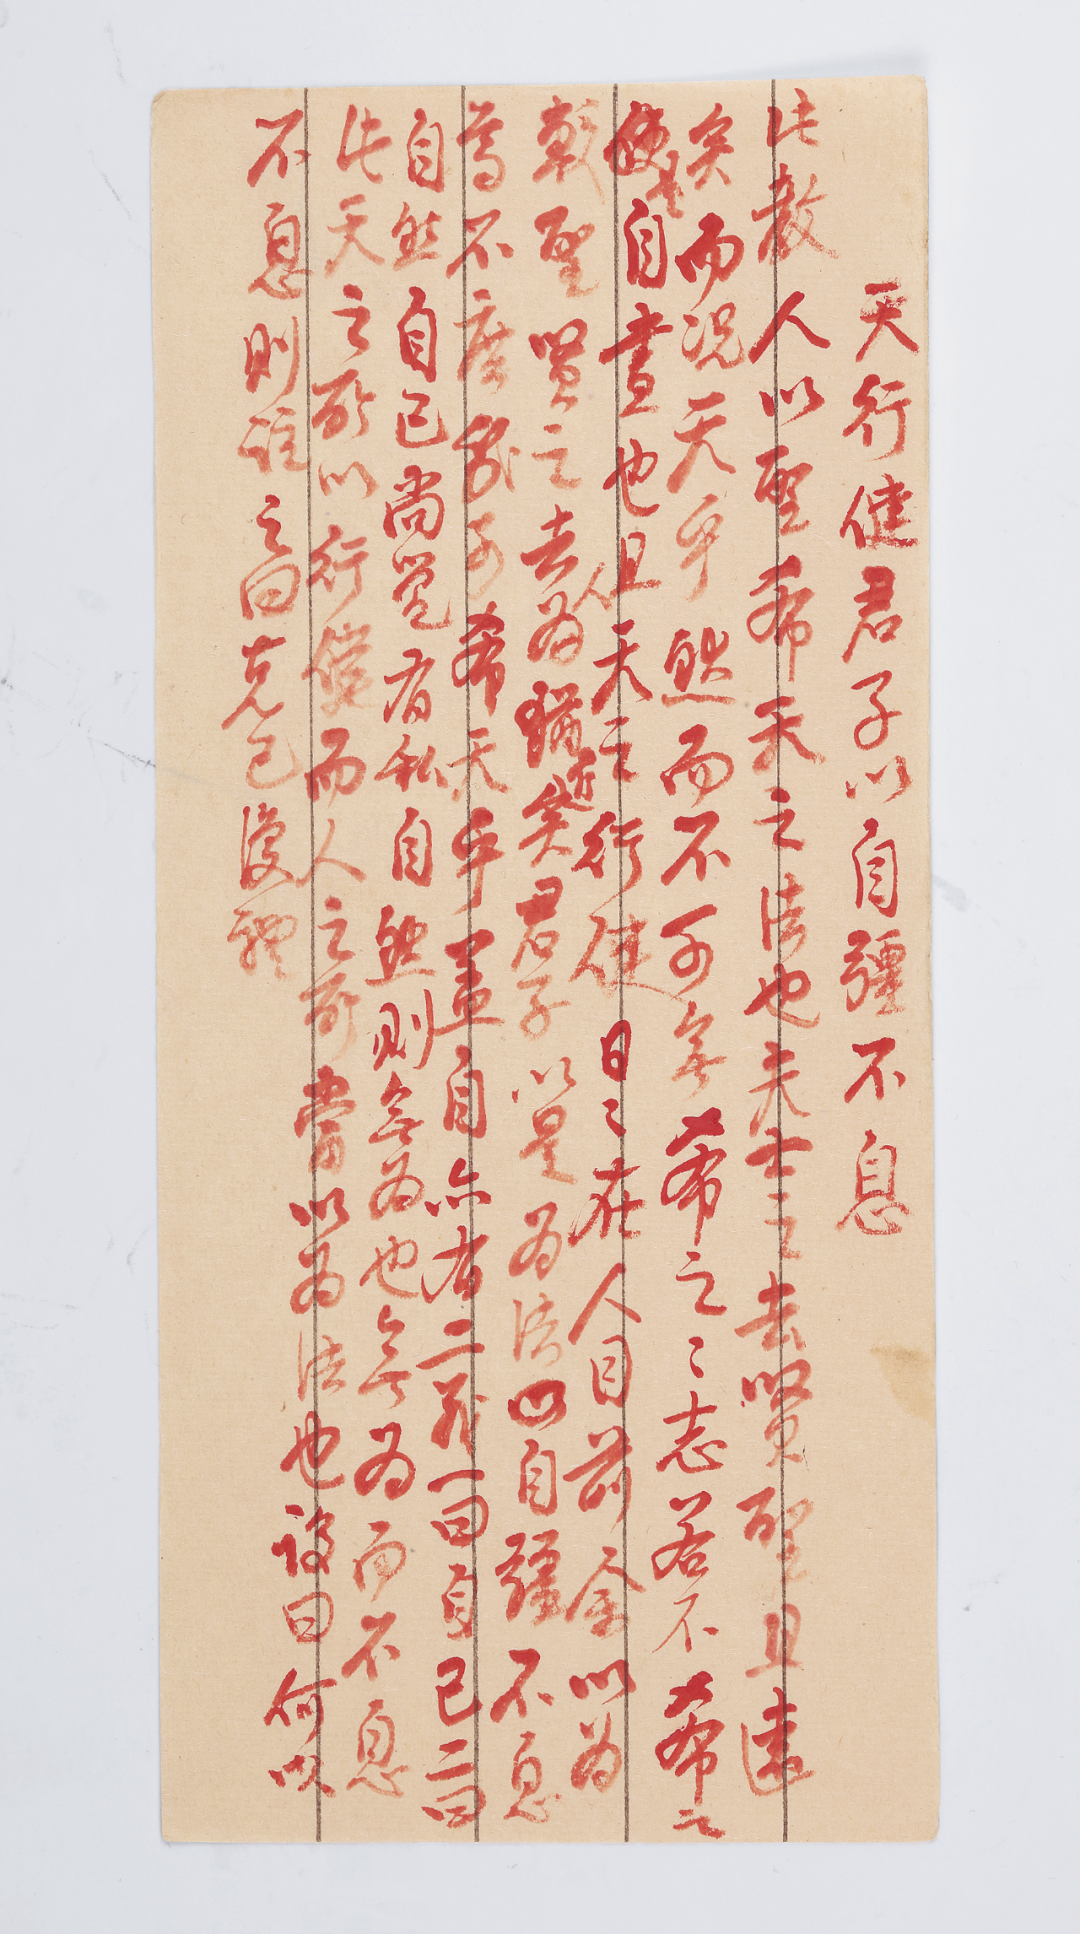 天行健君子以自疆不息
此教人以聖希天之法也夫士之去賢聖且遠
矣而况天乎然而不可無希之〻志若不希之
是自畫也且天之行健日〻在人目前余以為
較聖賢之去人為猶近矣君子以是為法以自疆不息
焉不庶幾乎可希天乎蓋自亦有二義一曰自己二曰
自然自己尚覺有私自然則無為也無為而不息
此天之所以行健而人之所當以為法也設曰何以
不息則註之曰克己復禮